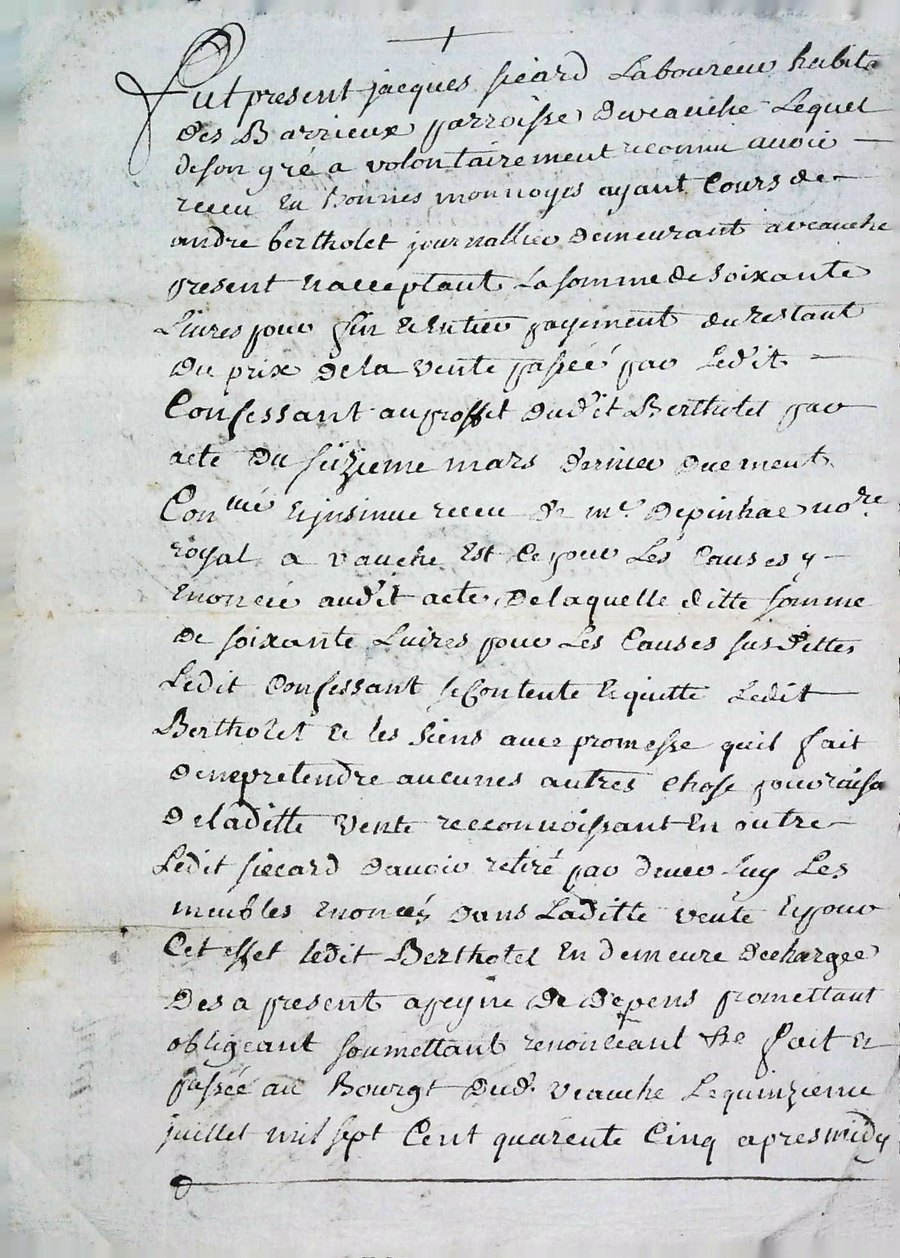 Fut present jacques sicard Laboureur habita
des Barrieux parroisse deveauche Lequel
deson gré a volontairement reconnu avoir
receu En bonnes monnoyes ayant Cours de
andre bertholet journallier demeurant aveauche
present Et acceptant La somme de soixante
Livres pour fin Et Entier payement du restant
Du prix de la vente passée par Ledit
Confessant au proffit dudit Bertholet par
acte du seizieme mars dernier duement
Con.llé Et insinue receu de m.e depinhac no.re
royal a vauche Est Ce pour Les Causes y
Enoncée audit acte, De laquelle ditte somme
de soixante Livres pour Les Causes susdittes
Ledit Confessant se Contente Et quitte Ledit
Bertholet Et les siens avec promesse quil fait
de ne pretendre aucunes autres chose pour raison
De laditte vente recconnoissant En outre
Ledit siccard davoir retiré par dever luy Les
meubles Enoncés dans Laditte vente Et pour
Cet effet ledit Bertholet En demeure dechargee
Des a present a peyne de depens promettant
obligeant soumettant renonceant &c fait Et
passée au Bourgt dud.t veauche Le quinzieme
juillet mil sept Cent quarente Cinq apres midy